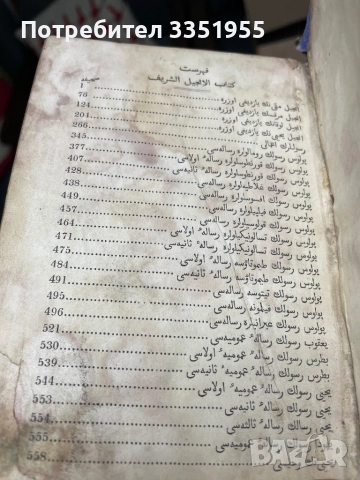 Потребител Потребител
فهرست
كتاب الانجيل الشريف
صحيفه
انجيل متى نك يازديغى اوزره 1
انجيل مرقسك يازديغى اوزره 76
انجيل لوقانك يازديغى اوزره 124
انجيل يحيى نك يازديغى اوزره 204
رسوللرك اعمالى 266
پولوس رسولك رومالولره رساله‌سى 345
پولوس رسولك قورنتوسلولره رسالهٔ اولاسى 377
پولوس رسولك قورنتوسلولره رسالهٔ ثانيه‌سى 407
پولوس رسولك غلاطيه‌لولره رساله‌سى 428
پولوس رسولك افسوسلولره رساله‌سى 438
پولوس رسولك فيليپيلولره رساله‌سى 449
پولوس رسولك قولوسيلولره رساله‌سى 457
پولوس رسولك تسالونيكيلولره رسالهٔ اولاسى 464
پولوس رسولك تسالونيكيلولره رسالهٔ ثانيه‌سى 471
پولوس رسولك طيموتاؤسه رسالهٔ اولاسى 475
پولوس رسولك طيموتاؤسه رسالهٔ ثانيه‌سى 484
پولوس رسولك تيتوسه رساله‌سى 491
پولوس رسولك فيلمونه رساله‌سى 495
پولوس رسولك عبرانيلره رساله‌سى 496
يعقوب رسولك رسالهٔ عموميه‌سى 521
بطرس رسولك رسالهٔ عموميهٔ اولاسى 530
بطرس رسولك رسالهٔ عموميهٔ ثانيه‌سى 539
يحيى رسولك رسالهٔ عموميهٔ اولاسى 544
يحيى رسولك رسالهٔ ثانيه‌سى 553
يحيى رسولك رسالهٔ ثالثه‌سى 554
رسولك رسالهٔ عموميه‌سى 555
558
bazar